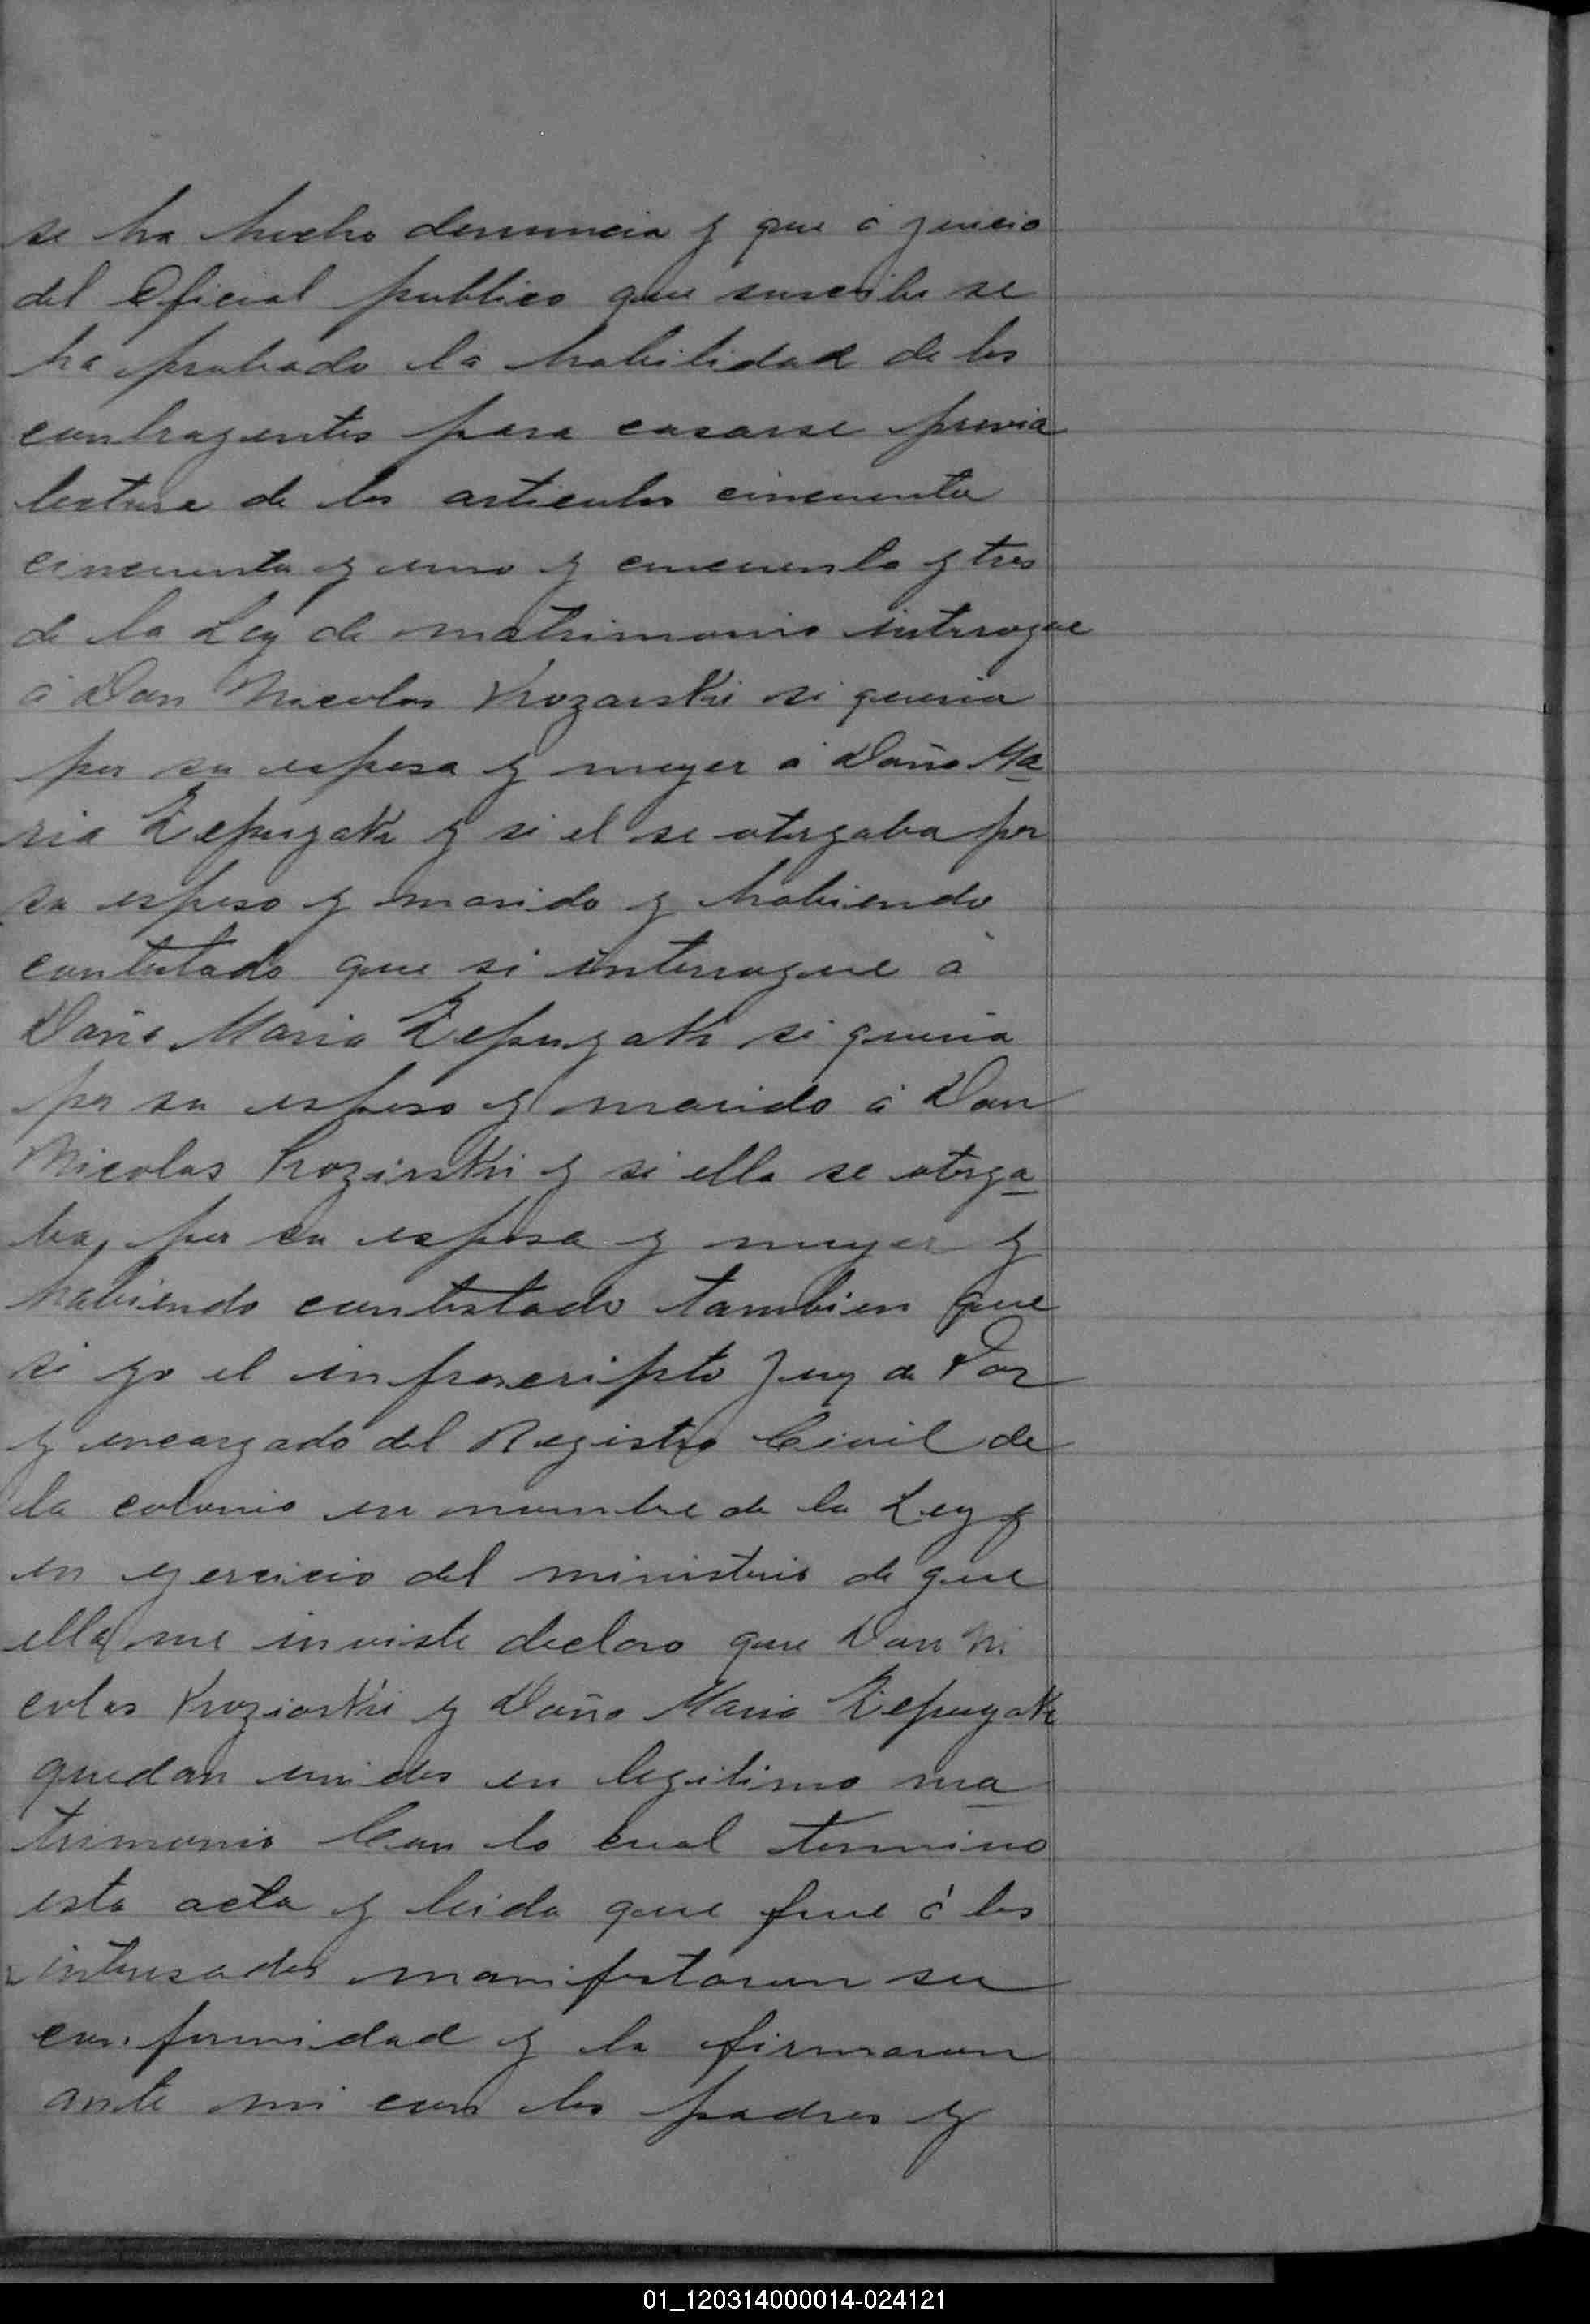 se ha hecho denuncia y que á juicio
del Oficial publico que suscribe se
ha probado la habilidad de los
contrayentes para casarse previa
lectura de los articulos cincuenta
cincuenta y uno y cincuenta y tres
de la Ley de matrimonio interrogue
á Don Nicolas Krozarski si queria
por su esposa y muger á Doña Ma
ria Zepugak y si el se otorgaba por
su esposo y marido y habiendo
contestado que si interrogue á
Doña Maria Zepugak si queria
por su esposo y marido á Don
Nicolas Krozinski y si ella se otorga
ba, por su esposa y muger y
habiendo contestado tambien que
si yo el infrascripto Juez de Paz
y encargado del Registro Civil de
la colonia en nombre de la Ley y
en ejercicio del ministerio de que
ella me inviste declaro que Don Ni
colas Kroziarski y Doña Maria Zepugak
quedan unidos en legitimo ma
trimonio Con lo cual termino
esta acta y leida que fue á los
interesados manifestaron su
conformidad y la firmaron
ante mi con los padres y
01_120314000014-024121